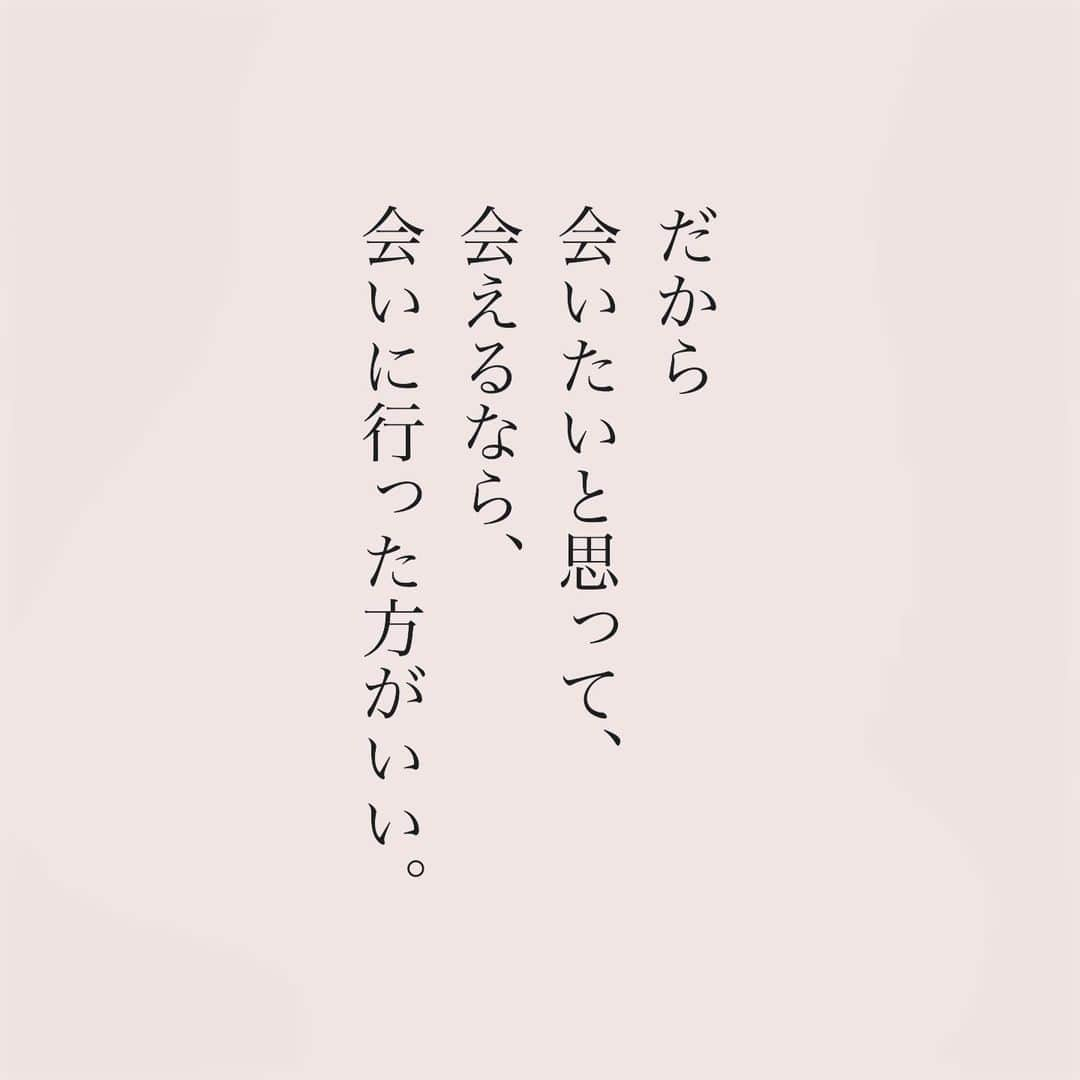 だから
会いたいと思って、
会えるなら、
会いに行った方がいい。